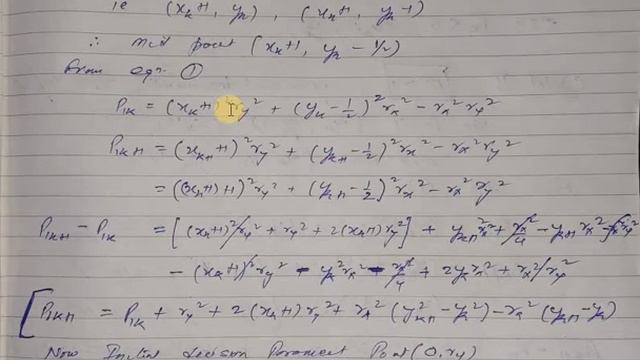 ie (xₖ+1, yₖ), (xₖ+1, yₖ-1)
∴ mid point (xₖ+1, yₖ - 1/2)
from eqn ①
P₁ₖ = (xₖ+1)² ry² + (yₖ - 1/2)² rx² - rx² ry²
P₁ₖ₊₁ = (xₖ₊₁+1)² ry² + (yₖ₊₁ - 1/2)² rx² - rx² ry²
= ((xₖ+1)+1)² ry² + (yₖ₊₁ - 1/2)² rx² - rx² ry²
P₁ₖ₊₁ - P₁ₖ = [(xₖ+1)² ry² + ry² + 2(xₖ+1) ry²] + yₖ₊₁² rx² + rx²/4 - yₖ₊₁ rx² - rx² ry²
- (xₖ+1)² ry² - yₖ² rx² - rx²/4 + 2yₖ rx² + rx² ry²
[P₁ₖ₊₁ = P₁ₖ + ry² + 2(xₖ+1) ry² + rx² (yₖ₊₁² - yₖ²) - rx² (yₖ₊₁ - yₖ)
Now Initial decision Parameter Point (0, ry)